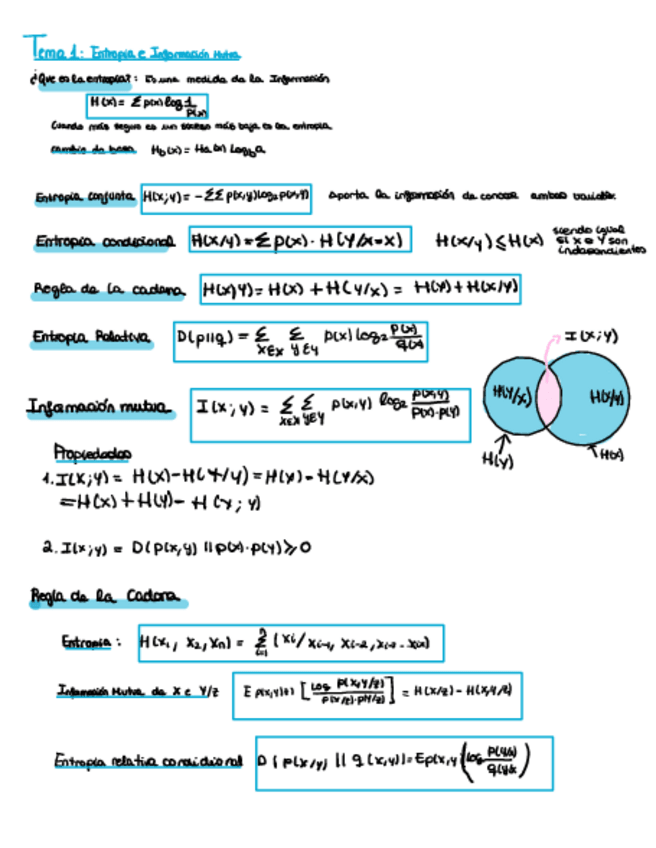 Tema 1: Entropía e Información Mutua
¿Que es la entropía?: Es una medida de la Información
H(x) = Σ p(x) log 1/p(x)
Cuando más seguro es un suceso más baja es la entropía.
cambio de base H_b(x) = Ha(x) Log_b a
Entropía conjunta H(x;y) = -ΣΣ p(x,y) log₂ p(x,y) Aporta la información de conocer ambas variables.
Entropía condicional H(x/y) = Σ p(x) · H(Y/x=x) H(x/y) ≤ H(x) siendo igual si x e y son independientes
Regla de la cadena H(x)Y) = H(x) + H(Y/x) = H(y) + H(x/y)
Entropía Relativa D(p||q) = Σ x∈x Σ y∈y p(x) log₂ p(x)/q(x)
I(x;y)
H(Y/x) H(x/y)
H(y) H(x)
Información mutua I(x;y) = Σ x∈x Σ y∈y p(x,y) log₂ p(x,y)/p(x)·p(y)
Propiedades
1. I(x;y) = H(x) - H(x/y) = H(y) - H(y/x)
= H(x) + H(y) - H(x;y)
2. I(x;y) = D(p(x,y) || p(x)·p(y)) ≥ 0
Regla de la Cadena
Entropía: H(x₁, x₂, xn) = Σ (xi/xi-1, xi-2, xi-3
Información Mutua de x e Y/z E p(x,y/z) [log p(x,y/z)/p(x/z)·p(y/z)] = H(x/z) - H(x/y/z)
Entropía relativa condicional D(p(x/y) || q(x,y)) = Ep(x,y (log p(y/x)/q(y/x)